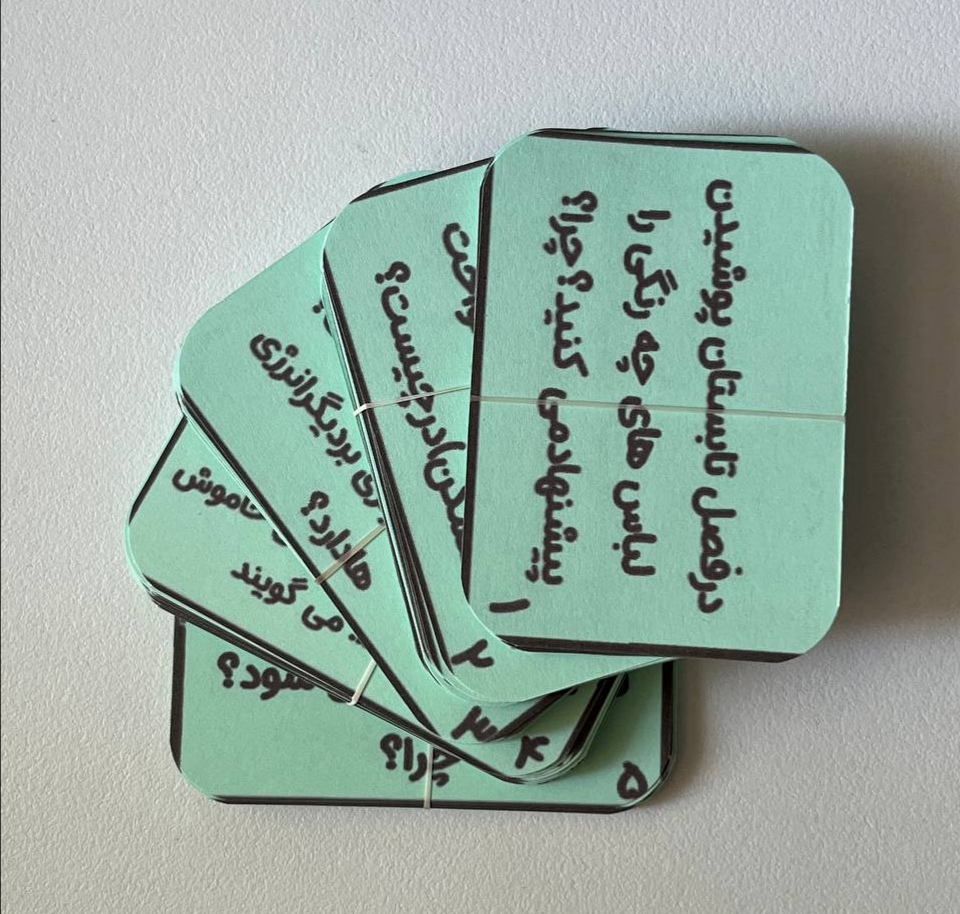 درفصل تابستان پوشیدن
لباس های چه رنگی را
پیشنهادمی کنید؟چرا؟
۱
درچیست؟
۲
بردیگرانرژی
هادارد؟
۳
خاموش
می گویند
۴
چرا؟
۵